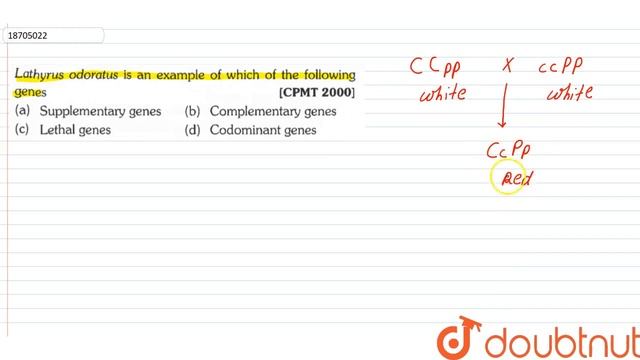 18705022
Lathyrus odoratus is an example of which of the following
genes [CPMT 2000]
(a) Supplementary genes (b) Complementary genes
(c) Lethal genes (d) Codominant genes
CCpp x ccPP
white white
CcPp
Red
doubtnut